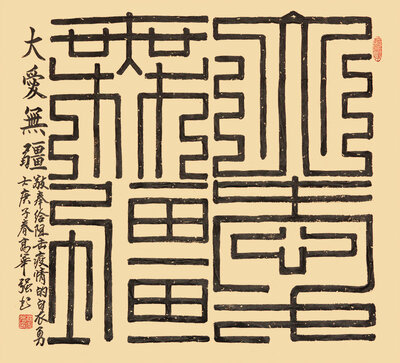 大愛無疆
大愛無疆
敬奉给阻击疫情的白衣勇
士庚子春高華强书